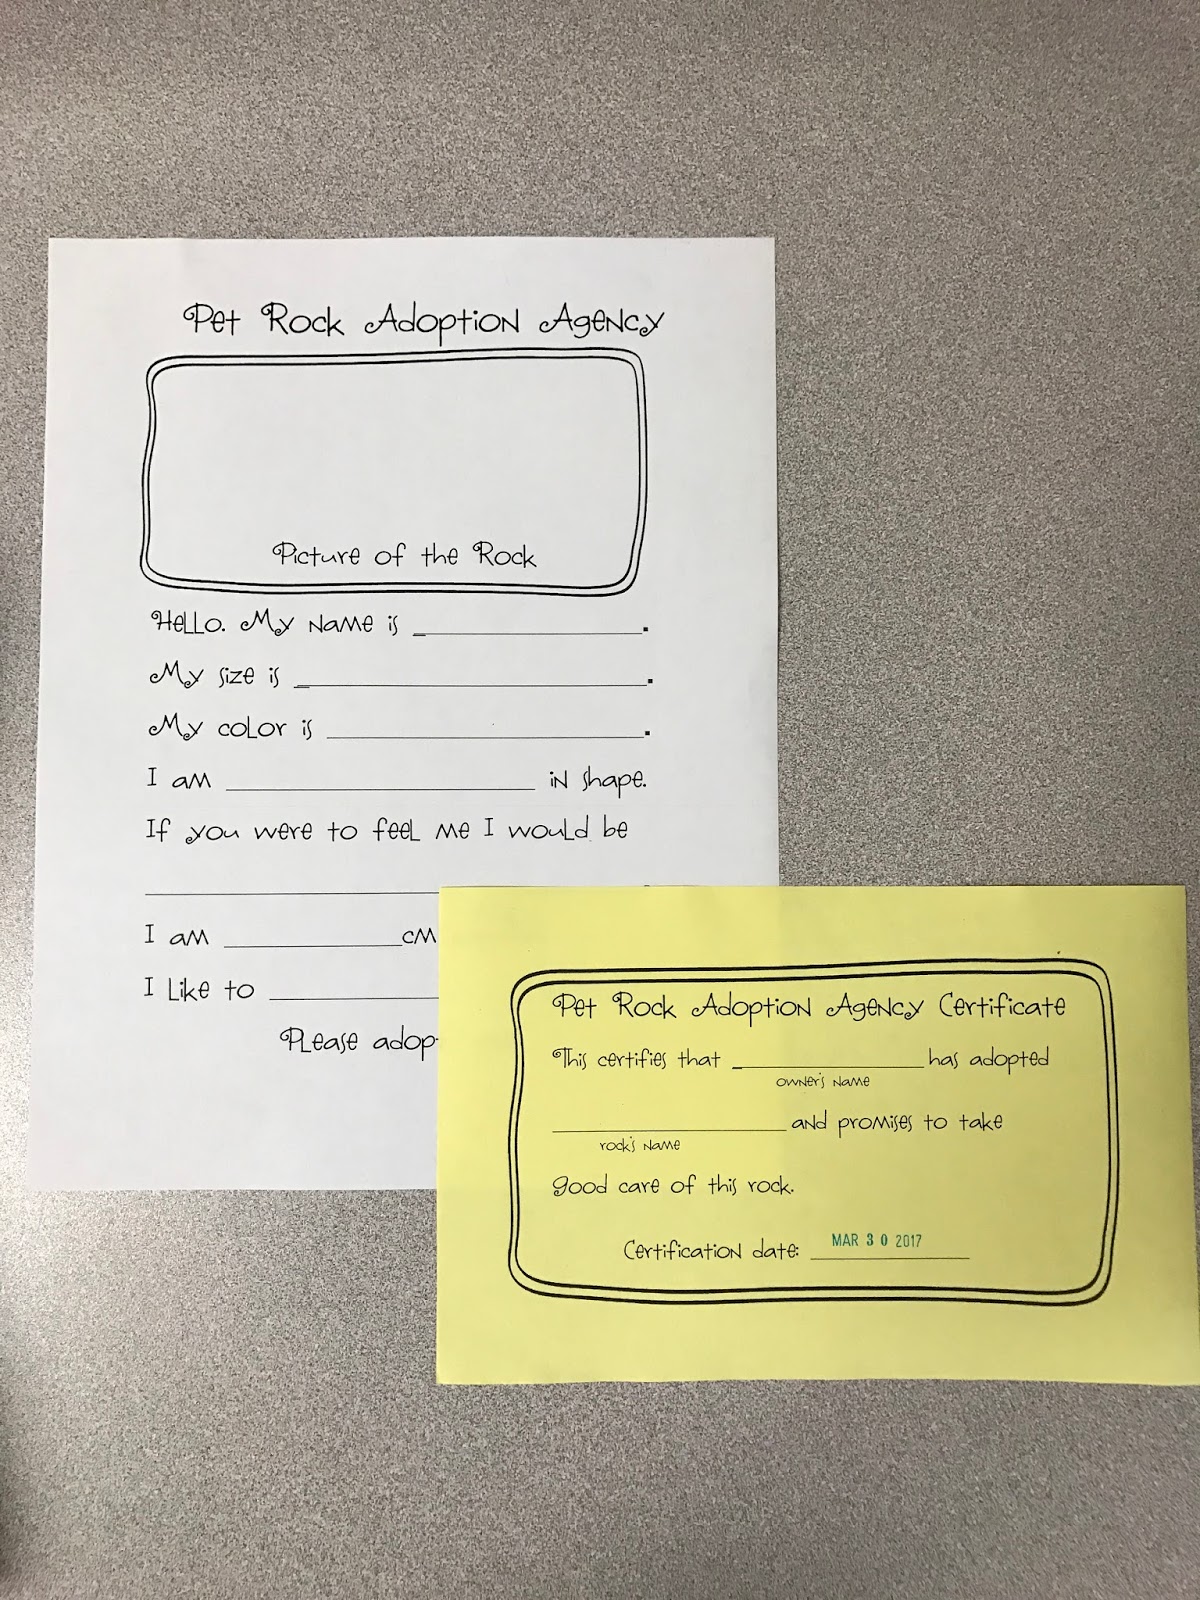 Pet Rock Adoption Agency
Picture of the Rock
Hello. My name is ______.
My size is ______.
My color is ______.
I am ______ in shape.
If you were to feel me I would be
______
I am ______cm
I like to ______
Please adop
Pet Rock Adoption Agency Certificate
This certifies that ______ has adopted
owner's name
______ and promises to take
rock's name
good care of this rock.
Certification date: MAR 30 2017